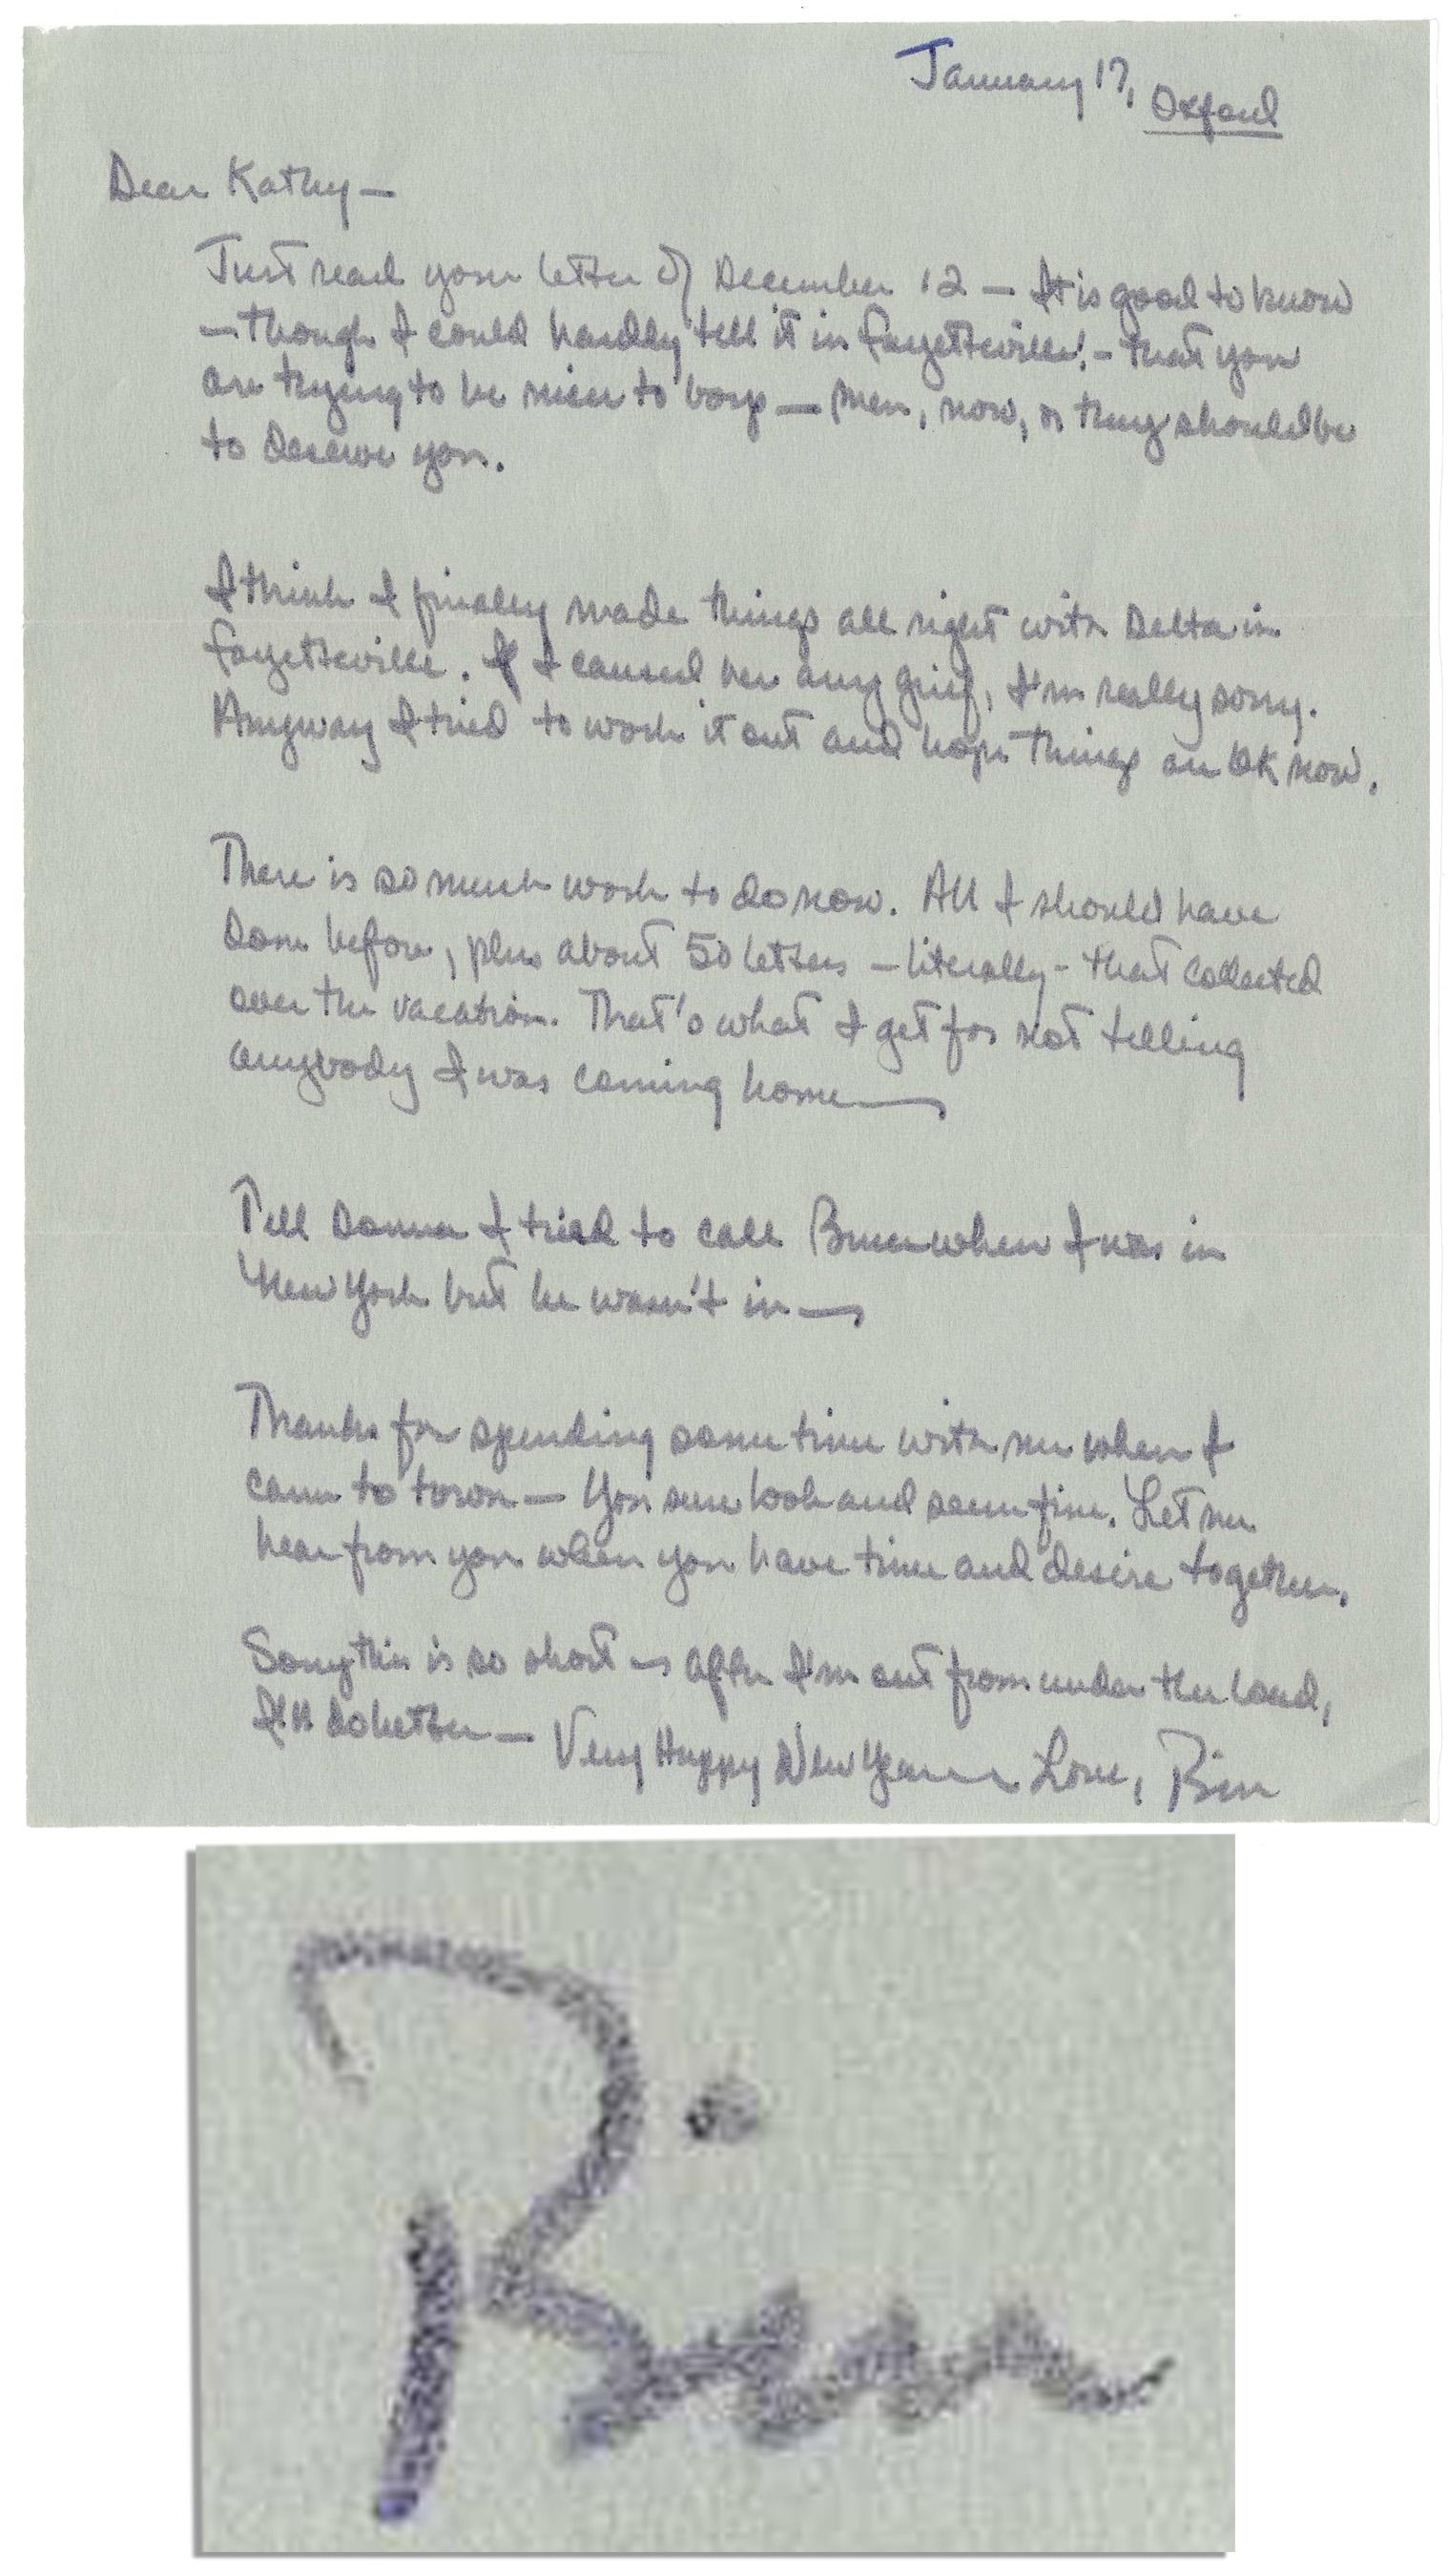 January 17, Oxford
Dear Kathy—
Just read your letter of December 12 — It is good to know
— though I could hardly tell it in Fayetteville! – that you
are trying to be nice to boys — men, now, or they should be
to deserve you.
I think I finally made things all right with Delta in
Fayetteville. If I caused her any grief, I'm really sorry.
Anyway I tried to work it out and hope things are OK now.
There is so much work to do now. All I should have
done before, plus about 50 letters – literally – that collected
over the vacation. That's what I get for not telling
anybody I was coming home—
Tell Donna I tried to call Bruce when I was in
New York but he wasn't in—
Thanks for spending some time with me when I
came to town — You sure look and seem fine. Let me
hear from you when you have time and desire together.
Sorry this is so short — after I'm out from under the load,
I'll do better — Very Happy New Year — Love, Bill
Bill